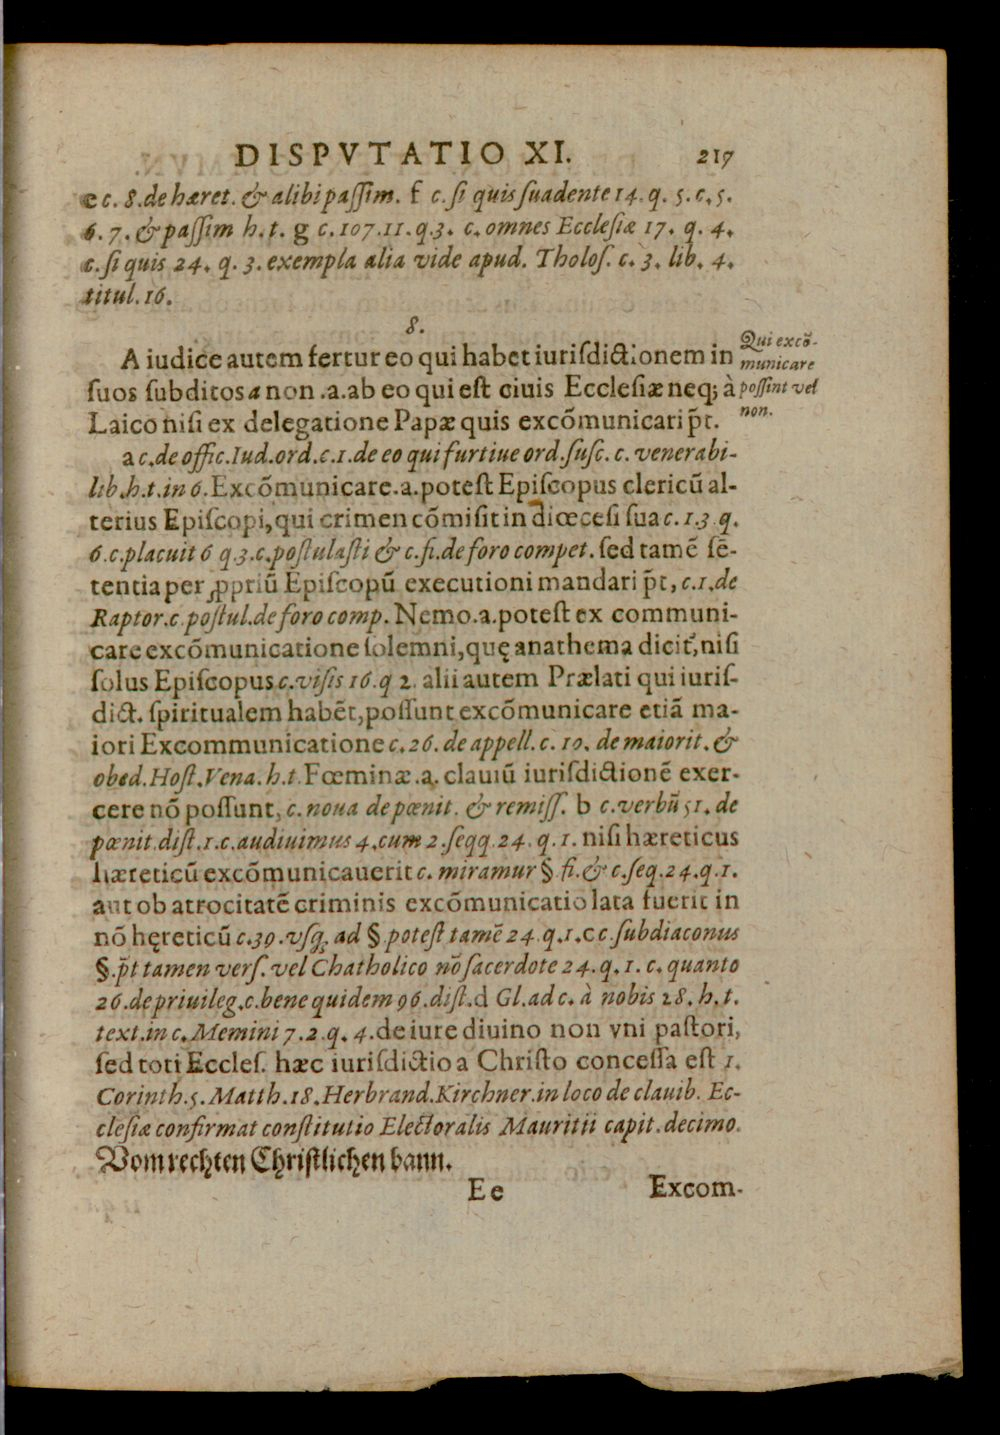 DISPVTATIO XI. 217
e c. 8. de hæret. & alibi paſſim. f c. ſi quis ſuadente 14. q. 5. c. 5.
6. 7. & paſſim h. t. g c. 107. 11. q. 3. c. omnes Eccleſiæ 17. q. 4.
c. ſi quis 24. q. 3. exempla alia vide apud. Tholoſ. c. 3. lib. 4.
titul. 16.
8.
A iudice autem fertur eo qui habet iuriſdictionem in
ſuos ſubditos a non .a. ab eo qui eſt ciuis Eccleſiæ neq; à
Laico niſi ex delegatione Papæ quis excõmunicari p̃t.
Qui excõ-
municare
poſſint vel
non.
a c. de offic. Iud. ord. c. 1. de eo qui furtiue ord. ſuſc. c. venerabi-
lib. h. t. in 6. Excõmunicare .a. poteſt Epiſcopus clericũ al-
terius Epiſcopi, qui crimen cõmiſit in diœceſi ſua c. 1. 3 q.
6. c. placuit 6 q. 3. c. poſtulaſti & c. fi. de foro compet. ſed tamẽ ſẽ-
tentia per ꝓpriũ Epiſcopũ executioni mandari p̃t, c. 1. de
Raptor. c. poſtul. de foro comp. Nemo .a. poteſt ex communi-
care excõmunicatione ſolemni, quę anathema dicit᷑, niſi
ſolus Epiſcopus c. viſis 16. q 2. alii autem Prælati qui iuriſ-
dict. ſpiritualem habẽt, poſſunt excõmunicare etiã ma-
iori Excommunicatione c. 26. de appell. c. 10. de maiorit. &
obed. Hoſt. Vena. h. t. Fœminæ .a. clauiũ iurisdictionẽ exer-
cere nõ poſſunt, c. noua de pœnit. & remiſſ. b c. verbũ 51. de
pœnit. diſt. 1. c. audiuimus 4. cum 2. ſeqq. 24. q. 1. niſi hæreticus
hæreticũ excõmunicauerit c. miramur § fi. & c. ſeq. 24. q. 1.
aut ob atrocitatẽ criminis excõmunicatio lata fuerit in
nõ hęreticũ c. 39. vſq; ad §. poteſt tamẽ 24. q. 1. c c. ſubdiaconus
§. p̃t tamen verſ. vel Chatholico nõ ſacerdote 24. q. 1. c. quanto
26. de priuileg. c. bene quidem 96. diſt. d Gl. ad c. à nobis 28. h. t.
text. in c. Memini 7. 2. q. 4. de iure diuino non vni paſtori,
ſed toti Eccleſ. hæc iurisdictio a Chriſto conceſſa eſt 1.
Corinth. 5. Matth. 18. Herbrand. Kirchner. in loco de clauib. Ec-
cleſiæ confirmat conſtitutio Electoralis Mauritii capit. decimo.
Vom rechten Chriſtlichen bann.
Ee Excom-